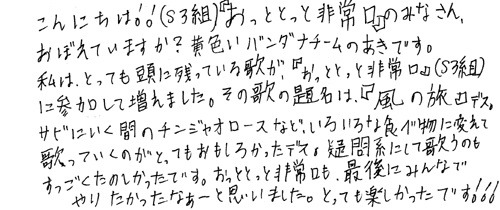 こんにちは!!(S3組)『おっととっと非常口』のみなさん、
おぼえていますか?黄色いバンダナチームのあきです。
私は、とっても頭に残っている歌が、『おっととっと非常口』(S3組)
に参加して増えました。その歌の題名は、『風の旅』デス。
サビにいく間のチンジャオロースなど、いろいろな食べ物に変えて
歌っていくのがとってもおもしろかったデス。疑問系にして歌うのも
すっごくたのしかったです。おっととっと非常口も、最後にみんなで
やりたかったなぁーと思いました。とっても楽しかったです!!!